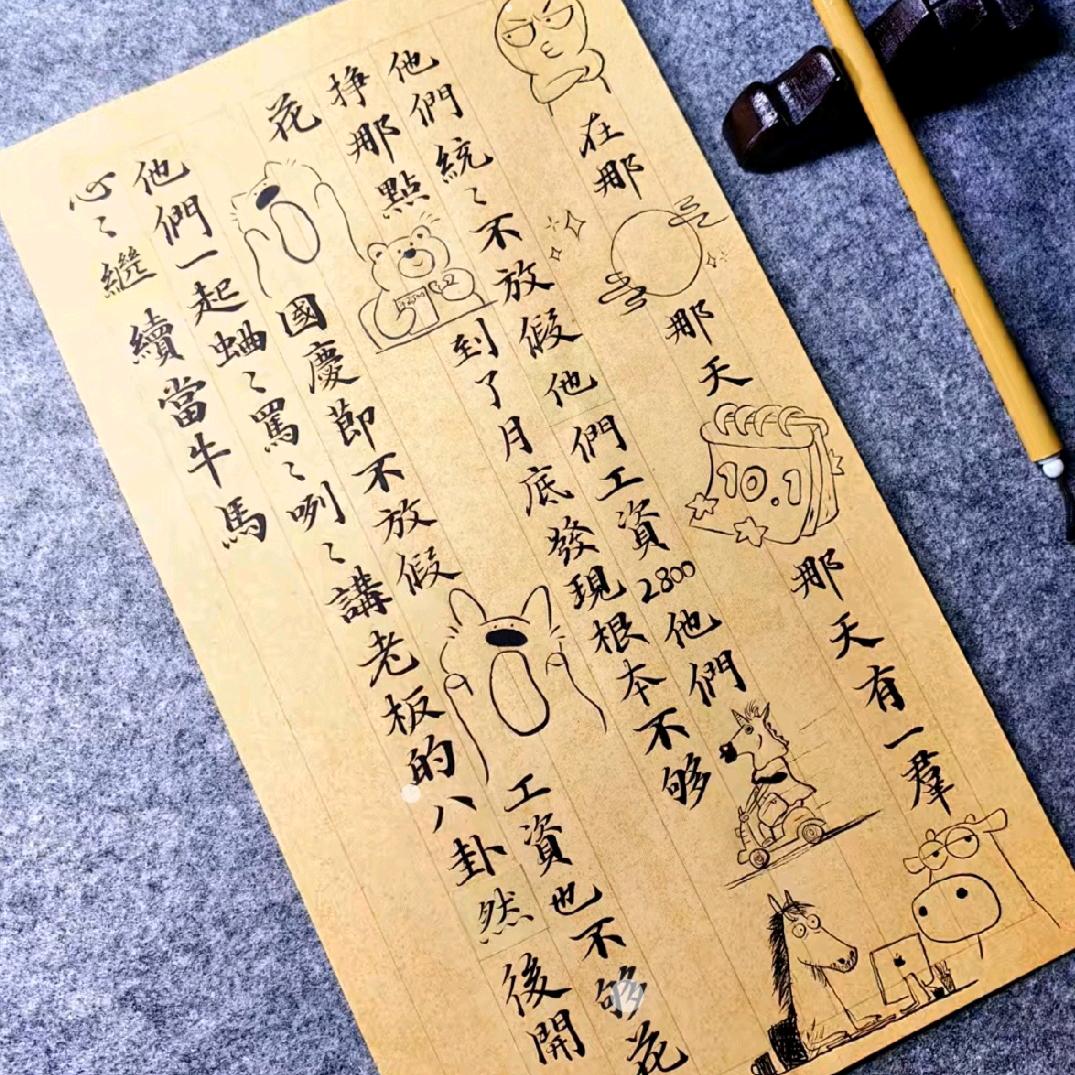 在那那天10.1那天有一羣
他們統〻不放假他們工資2800他們
掙那點到了月底發現根本不够
花國慶節不放假工資也不够花
他們一起蛐〻罵〻咧〻講老板的八卦然後開
心〻繼續當牛馬